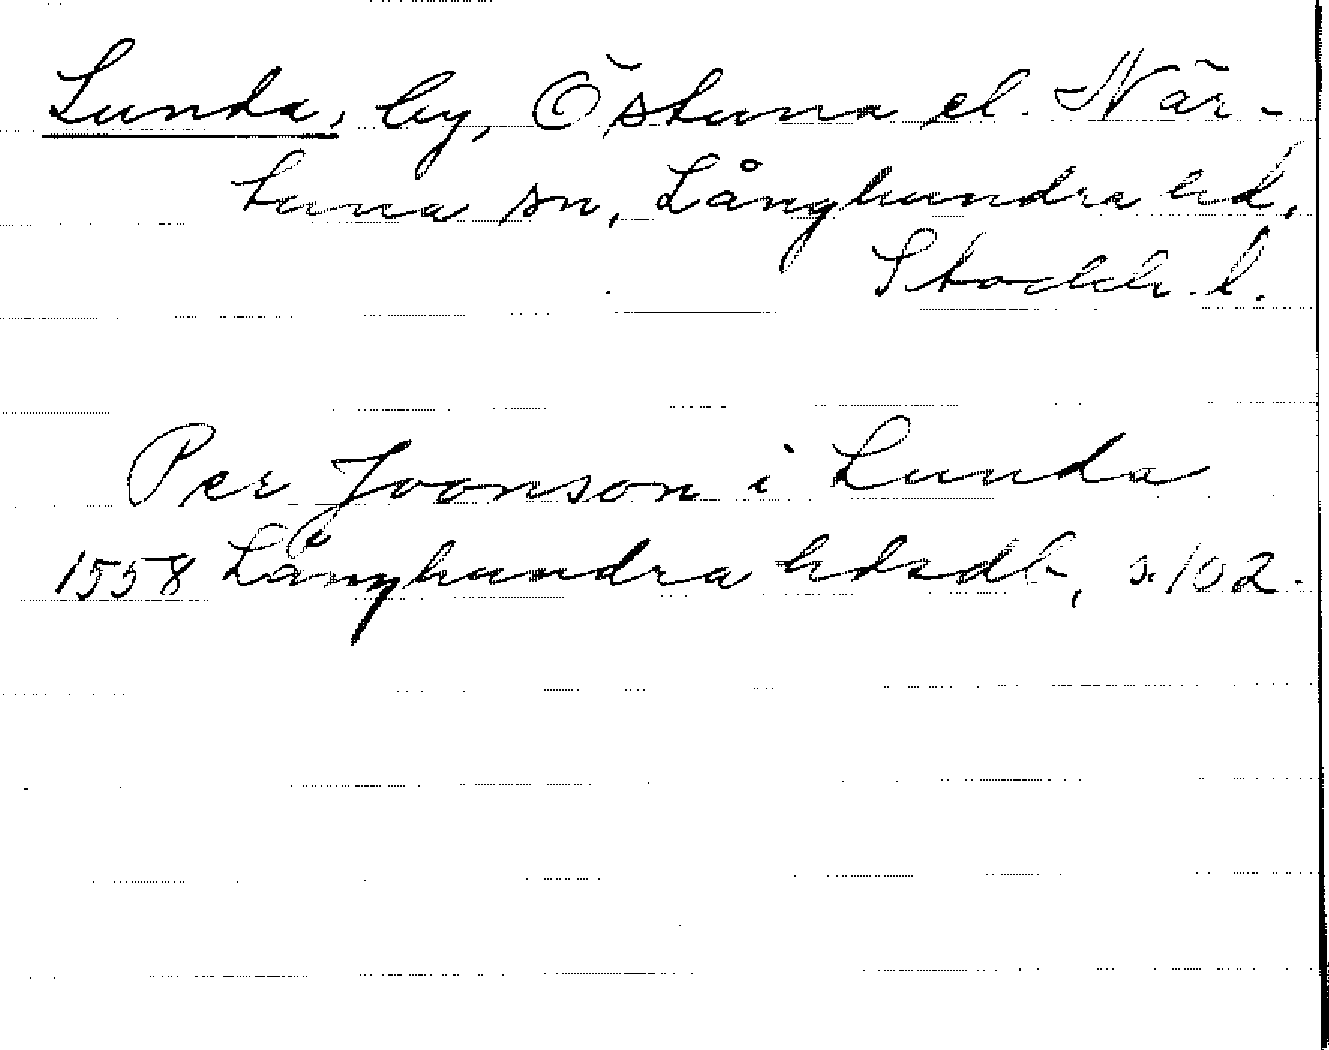 Lunda, by, Östuna el. När-
tuna sn, Långhundra hd,
Stockh. l.
Per Joonson i Lunda
1558 Långhundra hdsdb, s. 102.